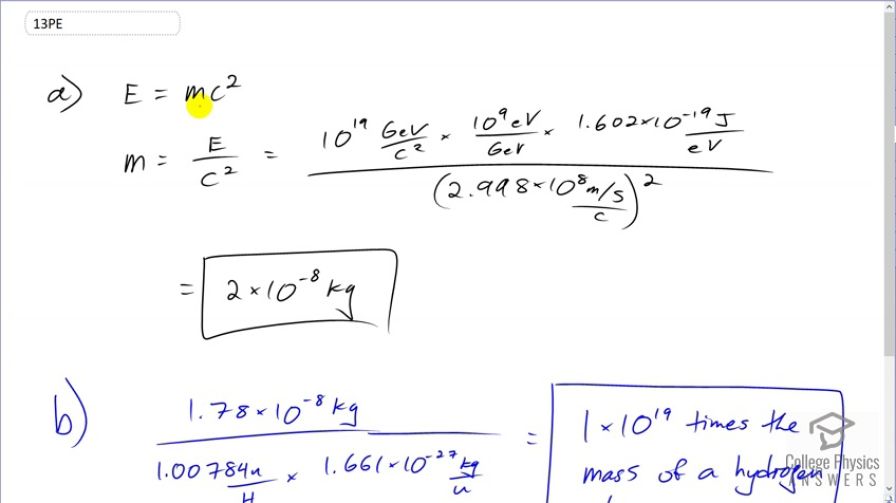 13PE
a) E = mc²
m = E/c² = (10¹⁹ GeV/c² × 10⁹ eV/GeV × 1.602×10⁻¹⁹ J/eV) / (2.998×10⁸ m/s/c)²
= 2×10⁻⁸ kg
b) (1.78×10⁻⁸ kg) / (1.00784u/H × 1.661×10⁻²⁷ kg/u) = 1×10¹⁹ times the
mass of a hydrogen
College Physics
ANSWERS